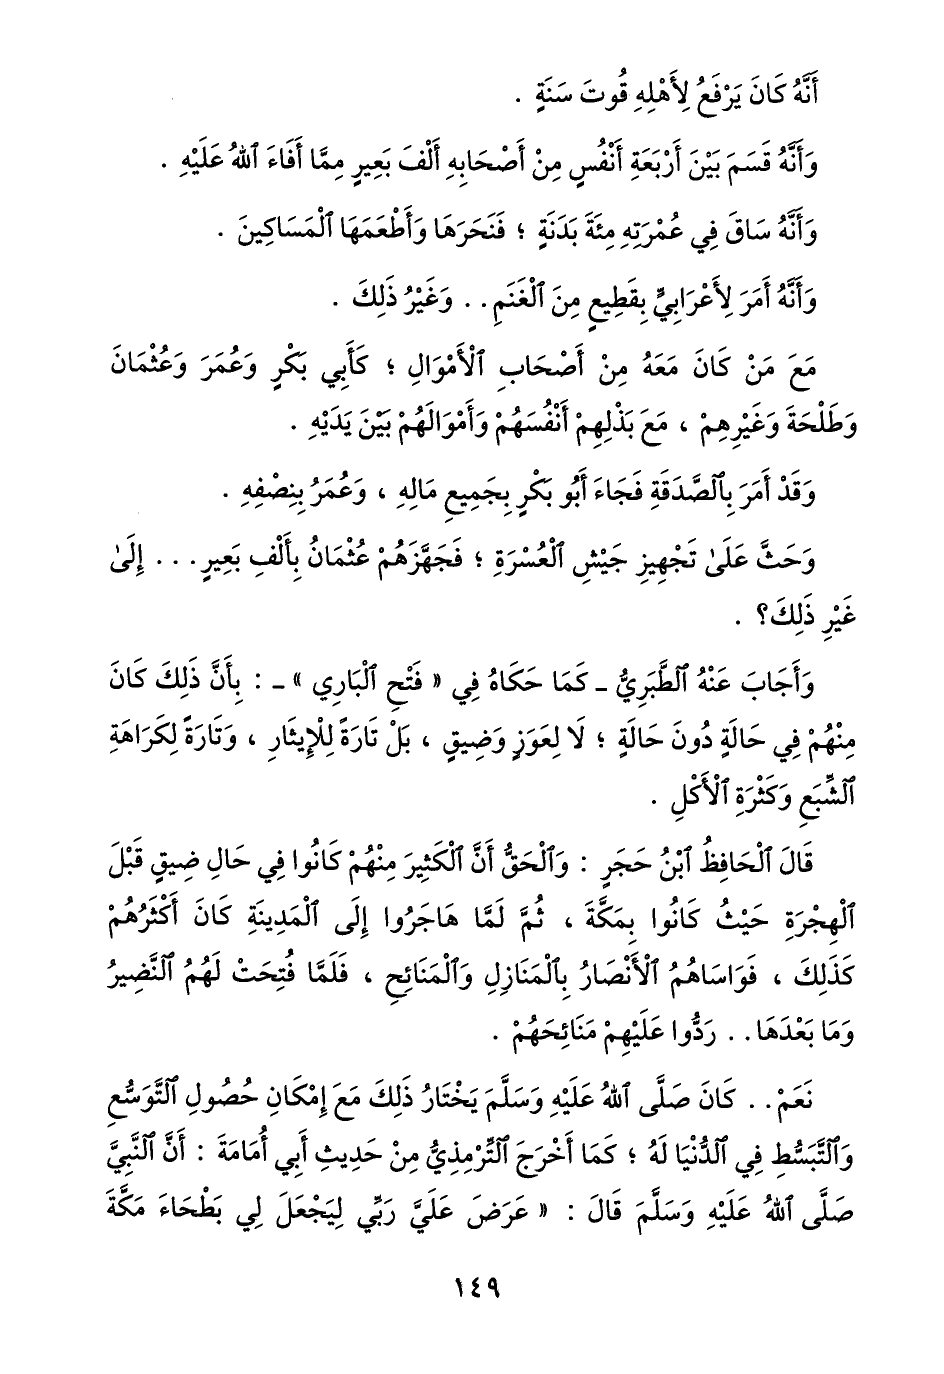 أَنَّهُ كَانَ يَرْفَعُ لِأَهْلِهِ قُوتَ سَنَةٍ .
وَأَنَّهُ قَسَمَ بَيْنَ أَرْبَعَةِ أَنْفُسٍ مِنْ أَصْحَابِهِ أَلْفَ بَعِيرٍ مِمَّا أَفَاءَ ٱللهُ عَلَيْهِ .
وَأَنَّهُ سَاقَ فِي عُمْرَتِهِ مِئَةَ بَدَنَةٍ ؛ فَنَحَرَهَا وَأَطْعَمَهَا ٱلْمَسَاكِينَ .
وَأَنَّهُ أَمَرَ لِأَعْرَابِيٍّ بِقَطِيعٍ مِنَ ٱلْغَنَمِ . . وَغَيْرُ ذَلِكَ .
مَعَ مَنْ كَانَ مَعَهُ مِنْ أَصْحَابِ ٱلْأَمْوَالِ ؛ كَأَبِي بَكْرٍ وَعُمَرَ وَعُثْمَانَ
وَطَلْحَةَ وَغَيْرِهِمْ ، مَعَ بَذْلِهِمْ أَنْفُسَهُمْ وَأَمْوَالَهُمْ بَيْنَ يَدَيْهِ .
وَقَدْ أَمَرَ بِٱلصَّدَقَةِ فَجَاءَ أَبُو بَكْرٍ بِجَمِيعِ مَالِهِ ، وَعُمَرُ بِنِصْفِهِ .
وَحَثَّ عَلَىٰ تَجْهِيزِ جَيْشِ ٱلْعُسْرَةِ ؛ فَجَهَّزَهُمْ عُثْمَانُ بِأَلْفِ بَعِيرٍ . . . إِلَىٰ
غَيْرِ ذَلِكَ؟ .
وَأَجَابَ عَنْهُ ٱلطَّبَرِيُّ ـ كَمَا حَكَاهُ فِي « فَتْحِ ٱلْبَارِي » ـ : بِأَنَّ ذَلِكَ كَانَ
مِنْهُمْ فِي حَالَةٍ دُونَ حَالَةٍ ؛ لَا لِعَوَزٍ وَضِيقٍ ، بَلْ تَارَةً لِلْإِيثَارِ ، وَتَارَةً لِكَرَاهَةِ
ٱلشِّبَعِ وَكَثْرَةِ ٱلْأَكْلِ .
قَالَ ٱلْحَافِظُ ٱبْنُ حَجَرٍ : وَٱلْحَقُّ أَنَّ ٱلْكَثِيرَ مِنْهُمْ كَانُوا فِي حَالِ ضِيقٍ قَبْلَ
ٱلْهِجْرَةِ حَيْثُ كَانُوا بِمَكَّةَ ، ثُمَّ لَمَّا هَاجَرُوا إِلَى ٱلْمَدِينَةِ كَانَ أَكْثَرُهُمْ
كَذَلِكَ ، فَوَاسَاهُمُ ٱلْأَنْصَارُ بِٱلْمَنَازِلِ وَٱلْمَنَائِحِ ، فَلَمَّا فُتِحَتْ لَهُمُ ٱلنَّضِيرُ
وَمَا بَعْدَهَا . . رَدُّوا عَلَيْهِمْ مَنَائِحَهُمْ .
نَعَمْ . . كَانَ صَلَّى ٱللهُ عَلَيْهِ وَسَلَّمَ يَخْتَارُ ذَلِكَ مَعَ إِمْكَانِ حُصُولِ ٱلتَّوَسُّعِ
وَٱلتَّبَسُّطِ فِي ٱلدُّنْيَا لَهُ ؛ كَمَا أَخْرَجَ ٱلتِّرْمِذِيُّ مِنْ حَدِيثِ أَبِي أُمَامَةَ : أَنَّ ٱلنَّبِيَّ
صَلَّى ٱللهُ عَلَيْهِ وَسَلَّمَ قَالَ : « عَرَضَ عَلَيَّ رَبِّي لِيَجْعَلَ لِي بَطْحَاءَ مَكَّةَ
١٤٩